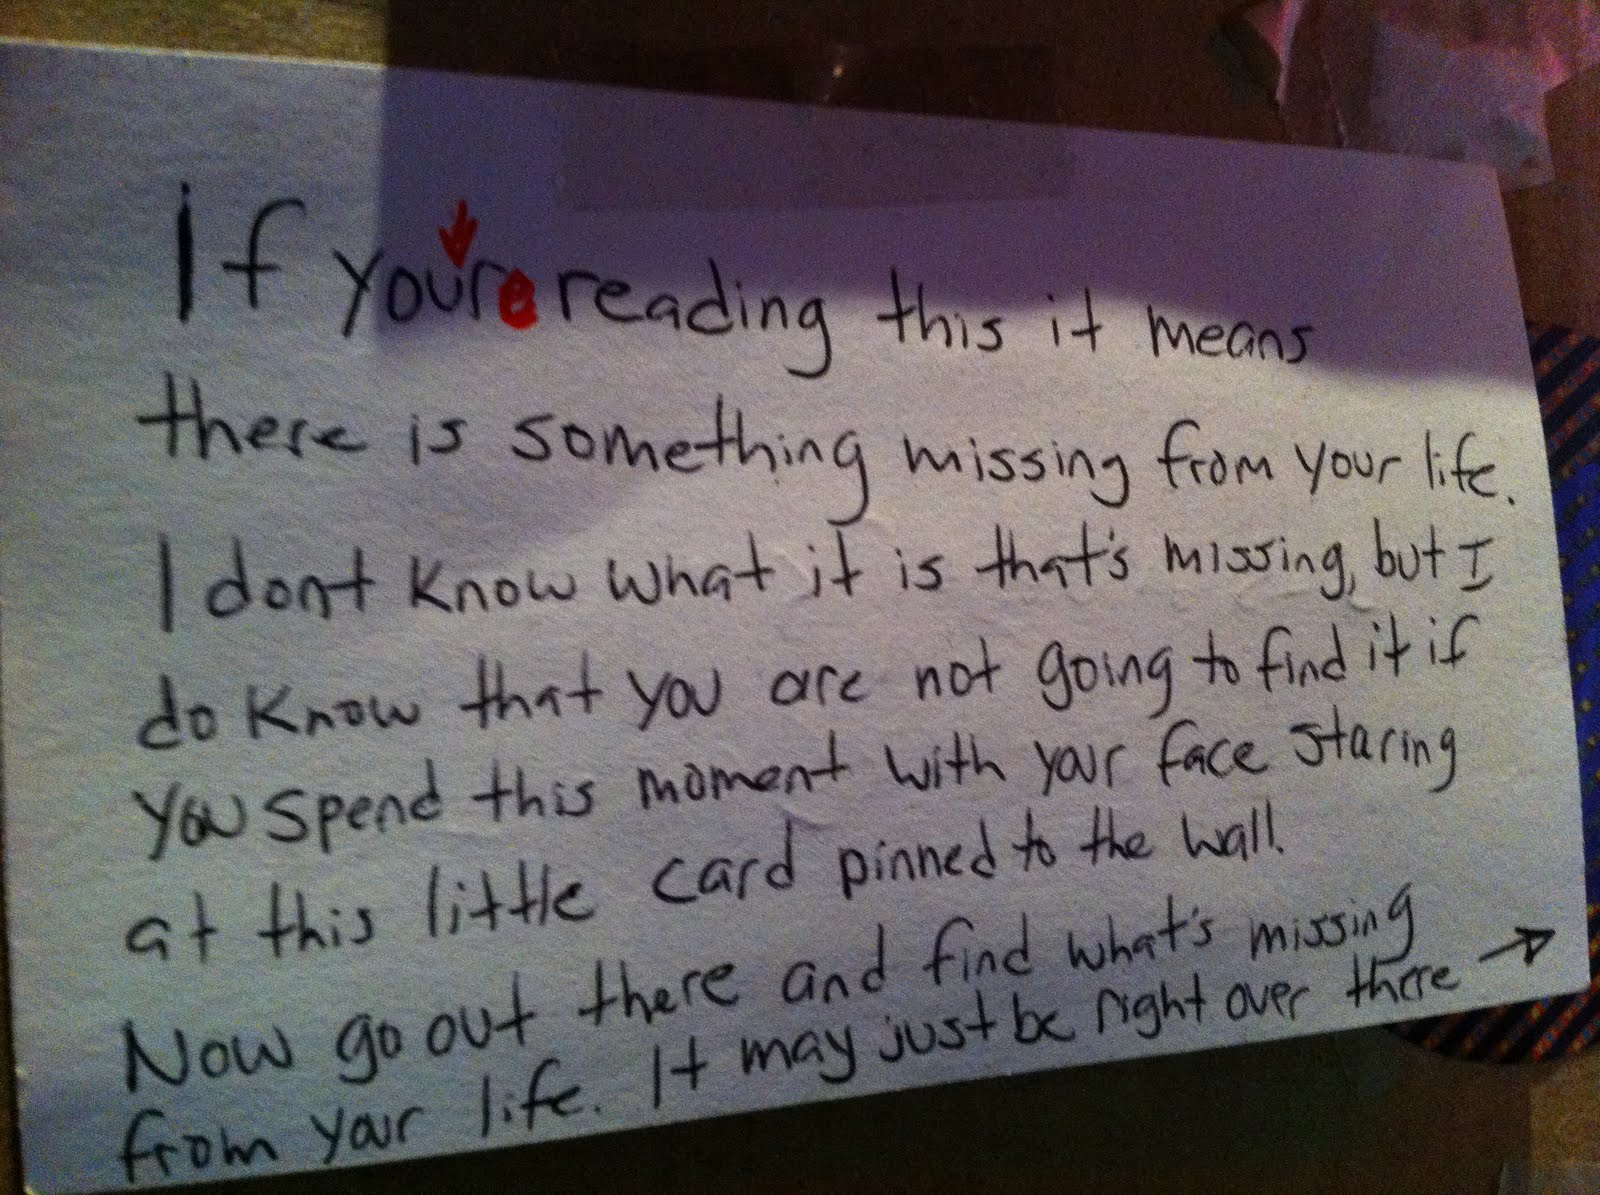 If you're reading this it means
there is something missing from your life.
I dont know what it is that's missing, but I
do know that you are not going to find it if
you spend this moment with your face staring
at this little card pinned to the wall.
Now go out there and find what's missing
from your life. It may just be right over there →